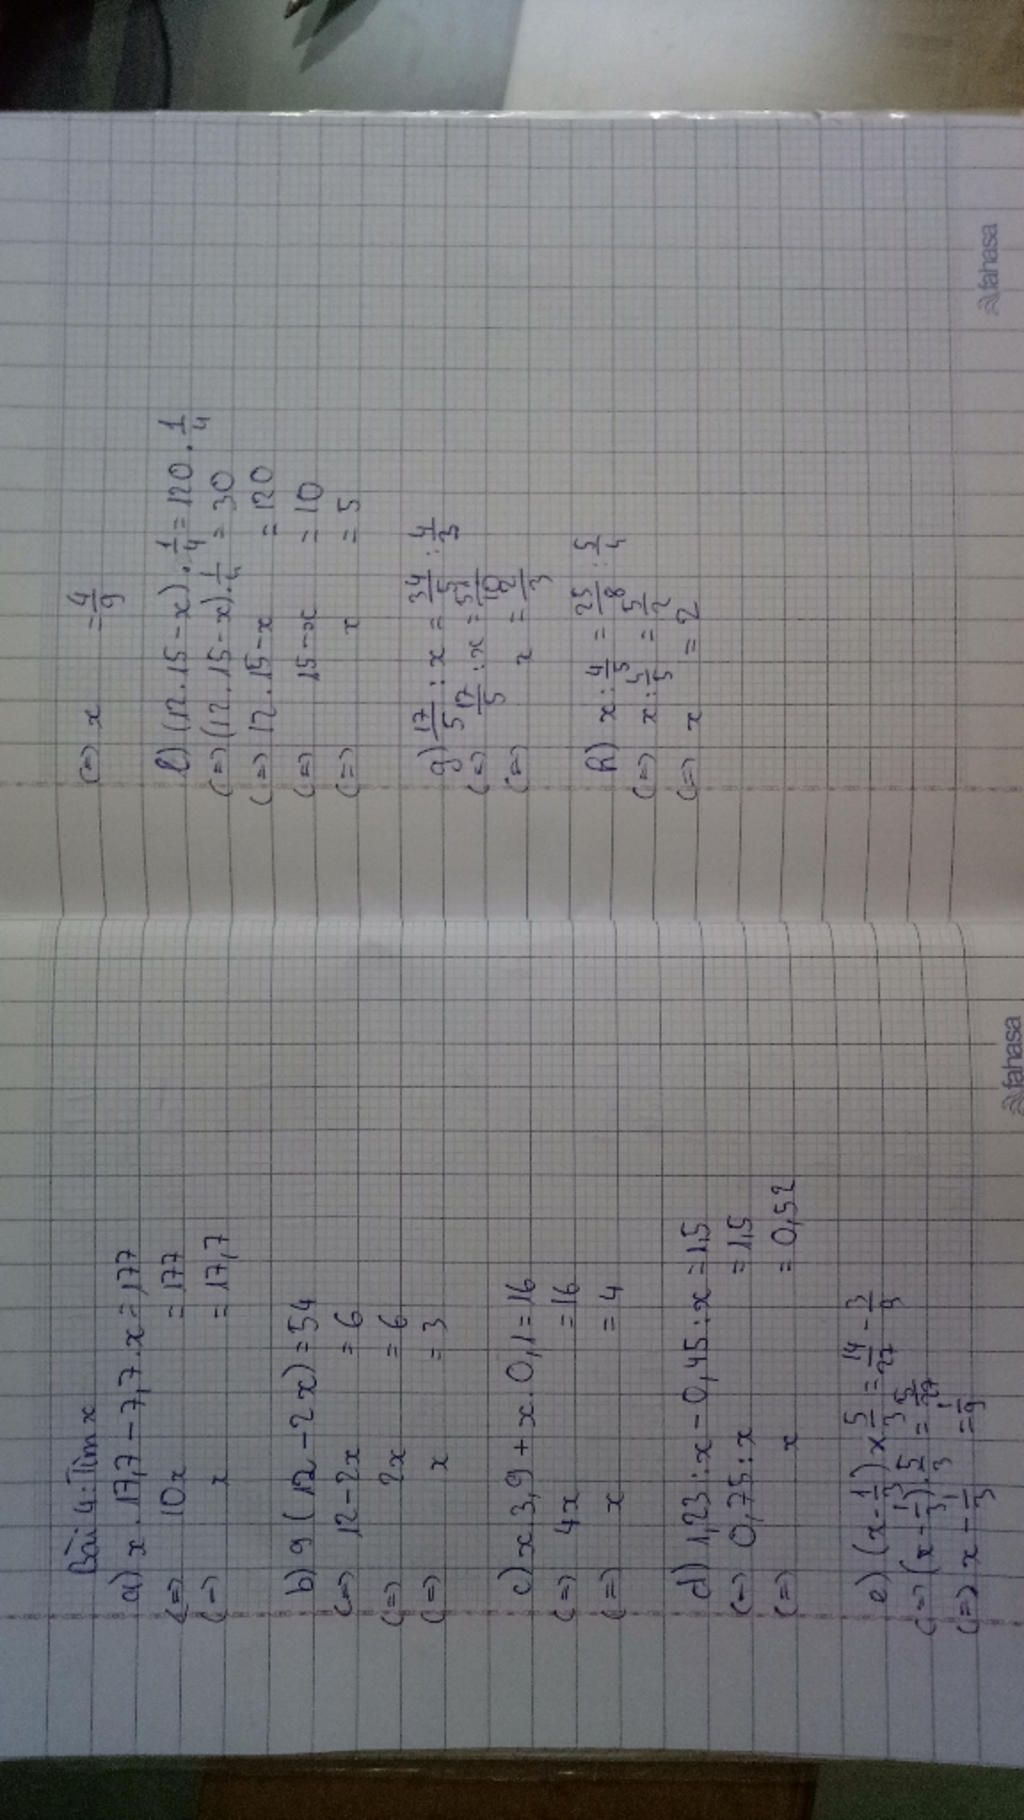 Bài 4: Tìm x
a) x . 17,7 - 7,7 . x = 177
(=) 10x = 177
(=) x = 17,7
b) 9 ( 12 - 2x ) = 54
(=) 12 - 2x = 6
(=) 2x = 6
(=) x = 3
c) x . 3,9 + x . 0,1 = 16
(=) 4x = 16
(=) x = 4
d) 1,23 : x - 0,45 : x = 1,5
(=) 0,75 : x = 1,5
(=) x = 0,52
e) (x - 1/3) x 5/3 = 14/27 - 3/9
(=) (x - 1/3) . 5/3 = 5/27
(=) x - 1/3 = 1/9
fahasa
(=) x = 4/9
l) (12 . 15 - x) . 1/4 = 120 . 1/4
(=) (12 . 15 - x) . 1/4 = 30
(=) 12 . 15 - x = 120
(=) 15 - x = 10
(=) x = 5
g) 17/5 : x = 34/5 : 4/3
(=) 17/5 : x = 51/10
(=) x = 2/3
h) x : 4/5 = 25/8 : 5/4
(=) x : 4/5 = 5/2
(=) x = 2
fahasa